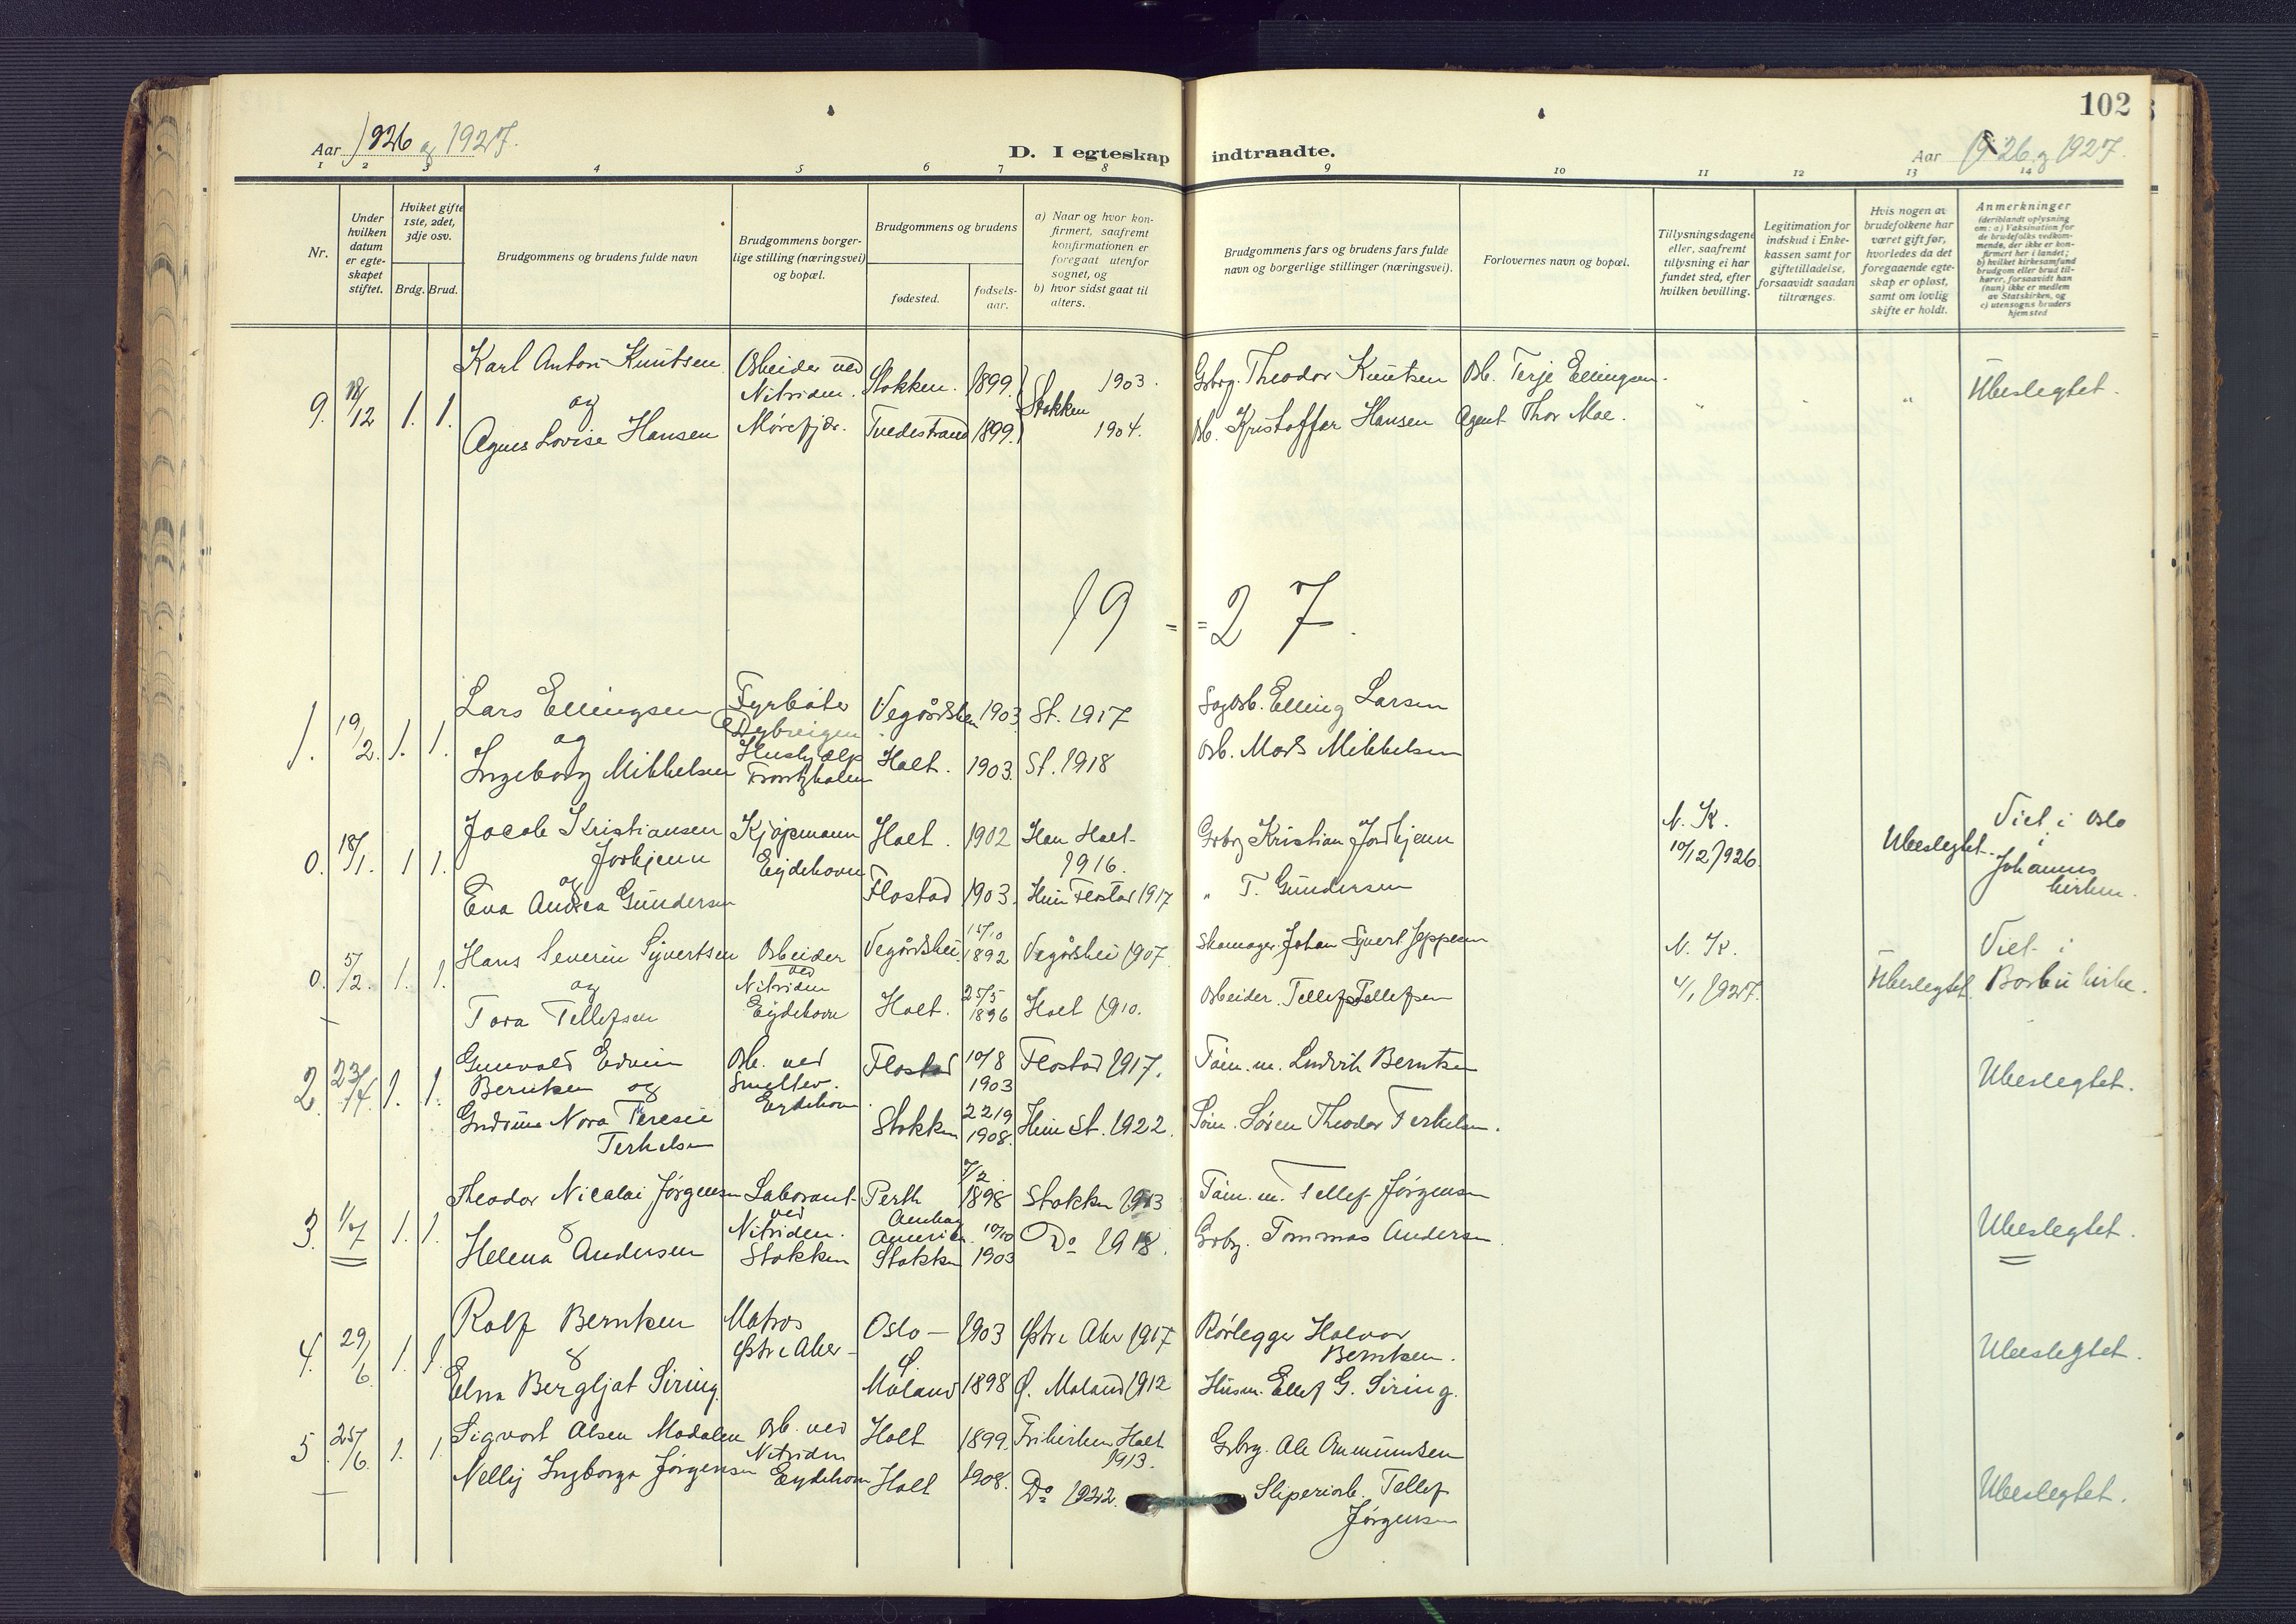 102
Aar 1926 og 1927.
D. I egteskap indtraadte.
Aar 1926 og 1927.
1 2 3 4 5 6 7 8 9 10 11 12 13 14
Nr.
Under hvilken datum er egteskapet stiftet.
Hviket gifte 1ste, 2det, 3dje osv.
Brdg. Brud.
Brudgommens og brudens fulde navn
Brudgommens borgerlige stilling (næringsvei) og bopæl.
Brudgommens og brudens
fødested.
fødselsaar.
a) Naar og hvor konfirmert, saafremt konfirmationen er foregaat utenfor sognet, og
b) hvor sidst gaat til alters.
Brudgommens fars og brudens fars fulde navn og borgerlige stillinger (næringsvei).
Forlovernes navn og bopæl.
Tillysningsdagene eller, saafremt tillysning ei har fundet sted, efter hvilken bevilling.
Legitimation for indskud i Enkekassen samt for giftetilladelse, forsaavidt saadan tiltrænges.
Hvis nogen av brudefolkene har været gift før, hvorledes da det foregaaende egteskap er opløst, samt om lovlig skifte er holdt.
Anmerkninger (deriblandt oplysning om: a) Vaksination for de brudefolks vedkommende, der ikke er konfirmert her i landet; b) hvilket kirkesamfund brudgom eller brud tilhører, forsaavidt han (hun) ikke er medlem av Statskirken, og c) utensogns bruders hjemsted
9. 18/12 1. 1. Karl Anton Knutsen Arbeider ved Nitriden. Stokken. 1899. Stokken 1903. Grbrg. Theodor Knutsen Arb. Terje Ellingsen. Ubeslegtet.
og
Agnes Lovise Hansen Mørefjær. Tvedestrand 1899. 1904. Arb. Kristoffer Hansen Agent Thor Moe.
19 = = 27.
1. 19/2. 1. 1. Lars Ellingsen Fyrbøter Vegårdshei 1903 St. 1917 Sagarb. Elling Larsen
og
Ingeborg Mikkelsen Hushjælp Holt. 1903. St. 1918 Arb. Mads Mikkelsen
0. 18/1. 1 1. Jacob Kristiansen Kjøpmann Holt. 1902 Han Holt 1916. Grbrg Kristian N. K. 10/12 1926. Ubeslegtet. Viet i Oslo
Eydehavn
og
Eva Andrea Gundersen Flostad 1903. Hun Flostad 1917 " T. Gundersen Johannes kirken.
0. 5/2. 1. 1. Hans Severin Syvertsen Arbeider ved Nitriden Vegårdshei. 15/10 1892 Vegårdshei 1907. Skomager. Johan Syvert Jeppesen N. K. 4/1 1927. Ubeslegtet. Viet i Barbu kirke.
og
Tora Tellefsen Eydehavn Holt. 25/5 1896 Holt 1910. Arbeider. Tellef Tellefsen
2. 23/4. 1. 1. Gunvald Edvin Berntsen og Arb. ved Smeltev. Eydehavn. Flostad 10/8 1903 Flostad 1917. Tøm. m. Ludvik Berntsen Ubeslegtet.
Gudrun Nora Teresie Terkelsen Stokken 22/9 1908. Hun St. 1922. Søm. Søren Theodor Terkelsen.
3. 1/7 1. 1. Theodor Nicolai Jørgensen Laborant ved Nitriden. Stokken Perth Amboy Amerika. 7/2 1898 Stokken 1913 Tøm. m. Tellef Jørgensen Ubeslegtet.
&
Helena Andersen Stokken 10/10 1903 Do 1918. Grbrg. Tommas Andersen.
4. 29/6. 1. 1. Rolf Berntsen Matros Østre Aker Oslo 1903 Østre Aker 1917 Rørlegger Halvor Berntsen. Ubeslegtet.
&
Elna Bergljot Siring. Ø. Moland 1898 Ø. Moland 1912 Husm. Ellef G. Siring.
5 25/6. 1. 1. Sigvart Olsen Modalen Arb. ved Nitriden Eydehavn Holt 1899. Frikirken Holt 1913. Grbrg. Ole Ommundsen
Nelly Ingborga Jørgensen Holt 1908. Do 1922. Sliperiarb. Tellef Jørgensen Ubeslegtet.